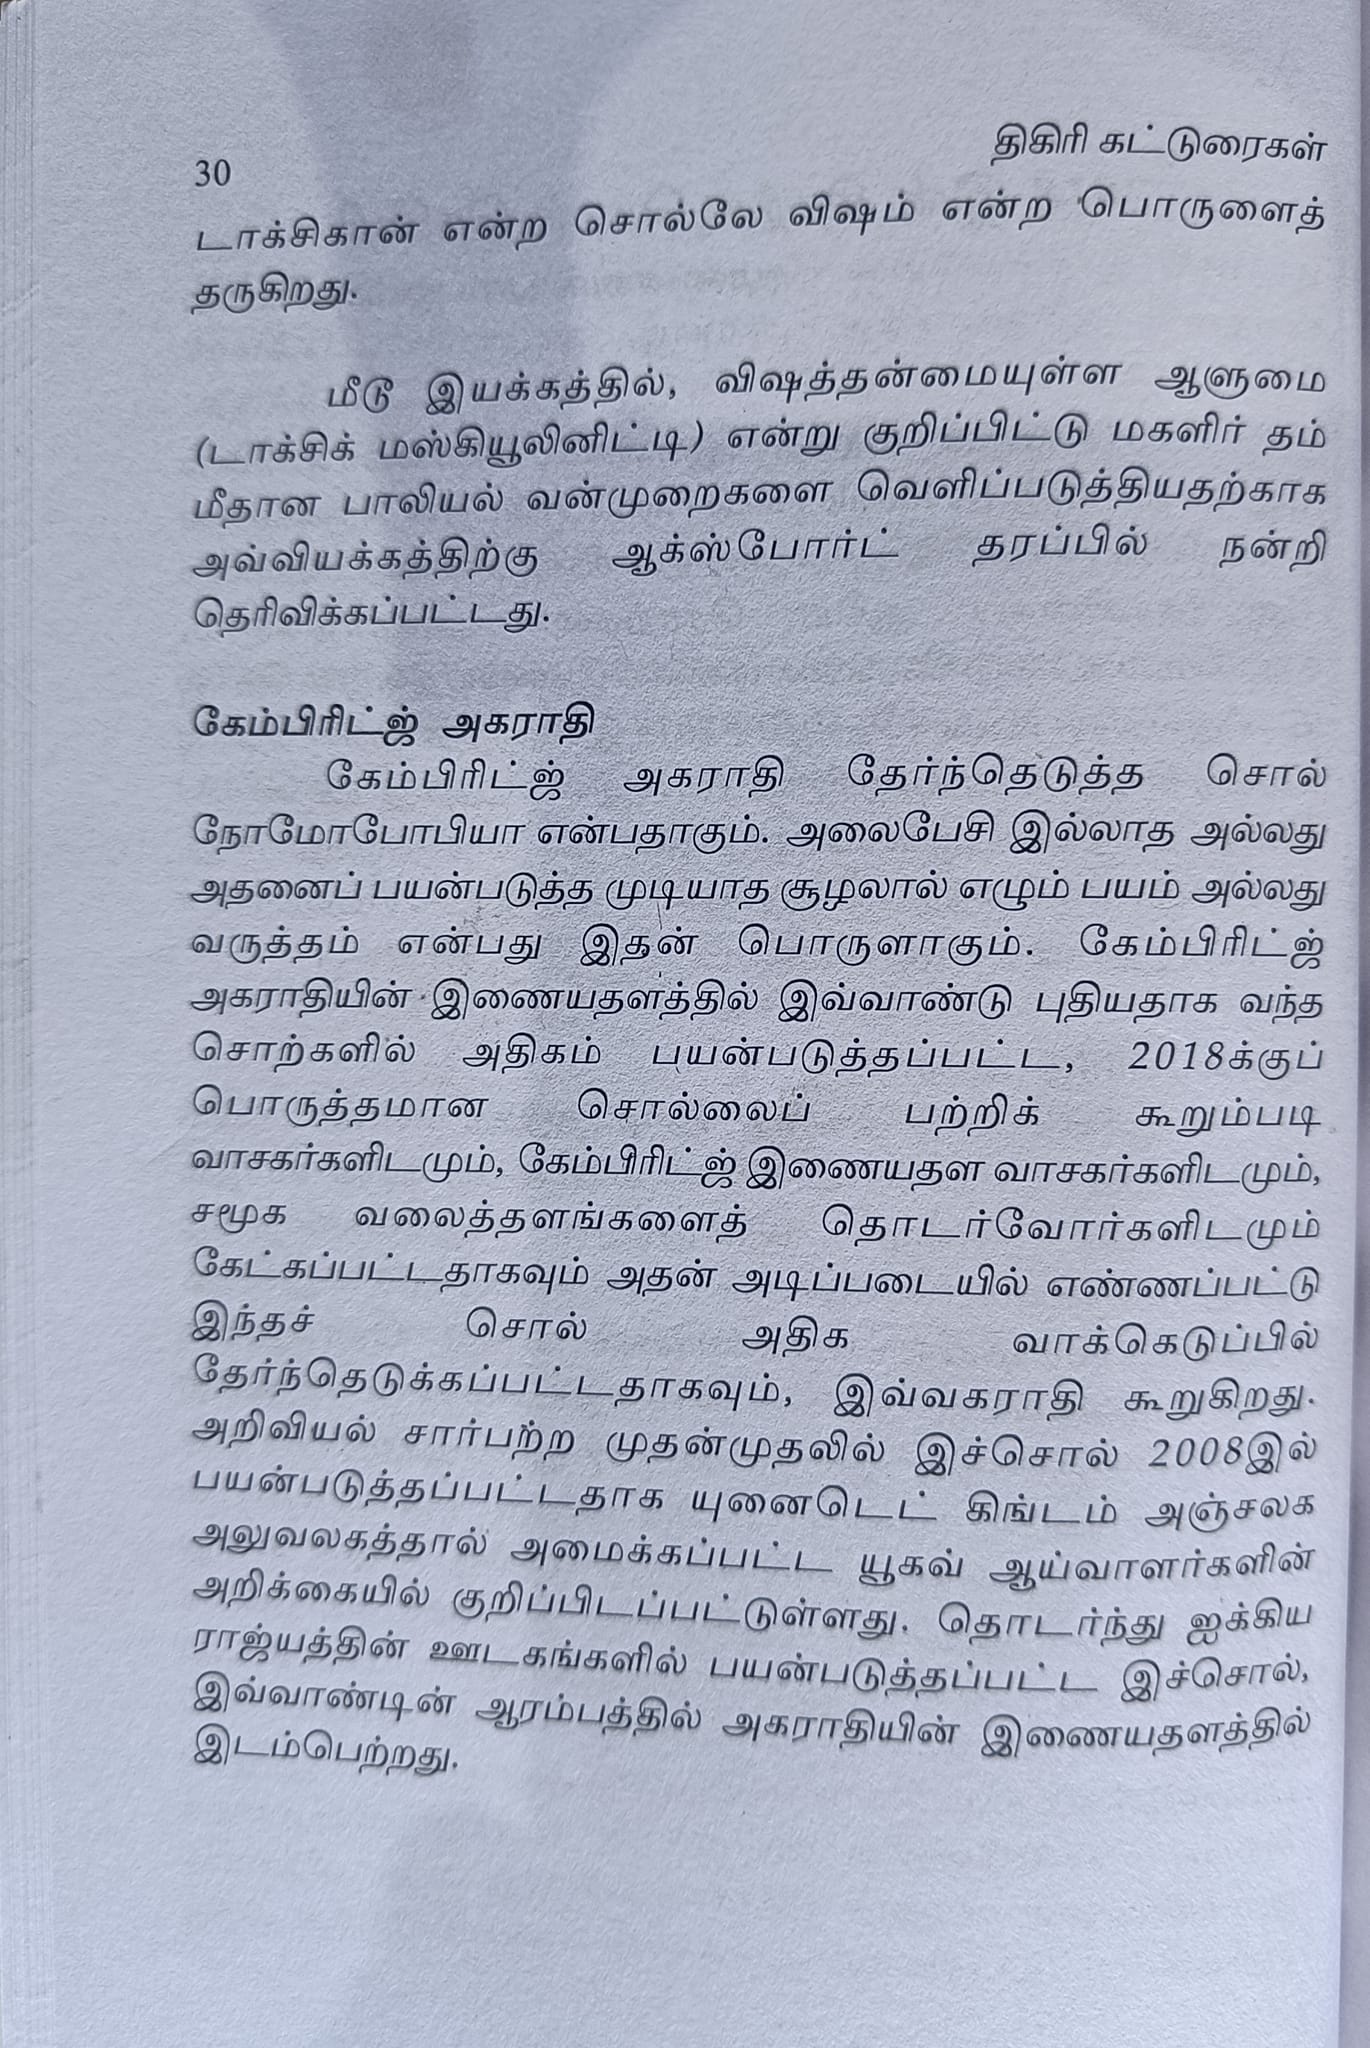 திகிரி கட்டுரைகள்
30
டாக்சிகான் என்ற சொல்லே விஷம் என்ற பொருளைத்
தருகிறது.
மீடூ இயக்கத்தில், விஷத்தன்மையுள்ள ஆளுமை
(டாக்சிக் மஸ்கியூலினிட்டி) என்று குறிப்பிட்டு மகளிர் தம்
மீதான பாலியல் வன்முறைகளை வெளிப்படுத்தியதற்காக
அவ்வியக்கத்திற்கு ஆக்ஸ்போர்ட் தரப்பில் நன்றி
தெரிவிக்கப்பட்டது.
கேம்பிரிட்ஜ் அகராதி
கேம்பிரிட்ஜ் அகராதி தேர்ந்தெடுத்த சொல்
நோமோபோபியா என்பதாகும். அலைபேசி இல்லாத அல்லது
அதனைப் பயன்படுத்த முடியாத சூழலால் எழும் பயம் அல்லது
வருத்தம் என்பது இதன் பொருளாகும். கேம்பிரிட்ஜ்
அகராதியின் இணையதளத்தில் இவ்வாண்டு புதியதாக வந்த
சொற்களில் அதிகம் பயன்படுத்தப்பட்ட, 2018க்குப்
பொருத்தமான சொல்லைப் பற்றிக் கூறும்படி
வாசகர்களிடமும், கேம்பிரிட்ஜ் இணையதள வாசகர்களிடமும்,
சமூக வலைத்தளங்களைத் தொடர்வோர்களிடமும்
கேட்கப்பட்டதாகவும் அதன் அடிப்படையில் எண்ணப்பட்டு
இந்தச் சொல் அதிக வாக்கெடுப்பில்
தேர்ந்தெடுக்கப்பட்டதாகவும், இவ்வகராதி கூறுகிறது.
அறிவியல் சார்பற்ற முதன்முதலில் இச்சொல் 2008இல்
பயன்படுத்தப்பட்டதாக யுனைடெட் கிங்டம் அஞ்சலக
அலுவலகத்தால் அமைக்கப்பட்ட யூகவ் ஆய்வாளர்களின்
அறிக்கையில் குறிப்பிடப்பட்டுள்ளது. தொடர்ந்து ஐக்கிய
ராஜ்யத்தின் ஊடகங்களில் பயன்படுத்தப்பட்ட இச்சொல்,
இவ்வாண்டின் ஆரம்பத்தில் அகராதியின் இணையதளத்தில்
இடம்பெற்றது.